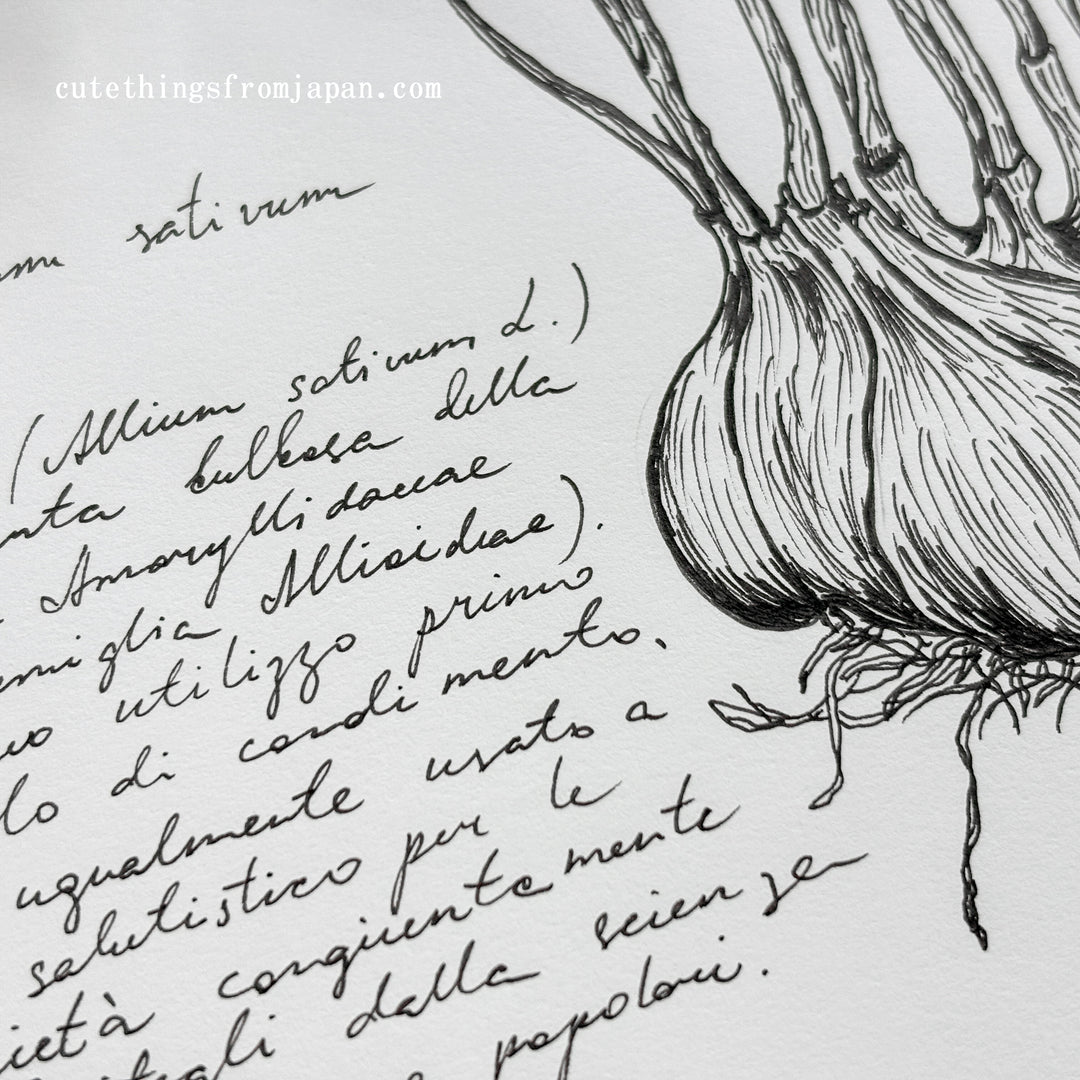 cutethingsfromjapan.com
sativum
(Allium sativum L.)
bulbosa della
Amaryllidaceae
miglia Allioideae).
utilizzo primo
lo di condimento,
ugualmente usato a
salutistico per le
ietà congiuntemente
dalla scienza
popolari.